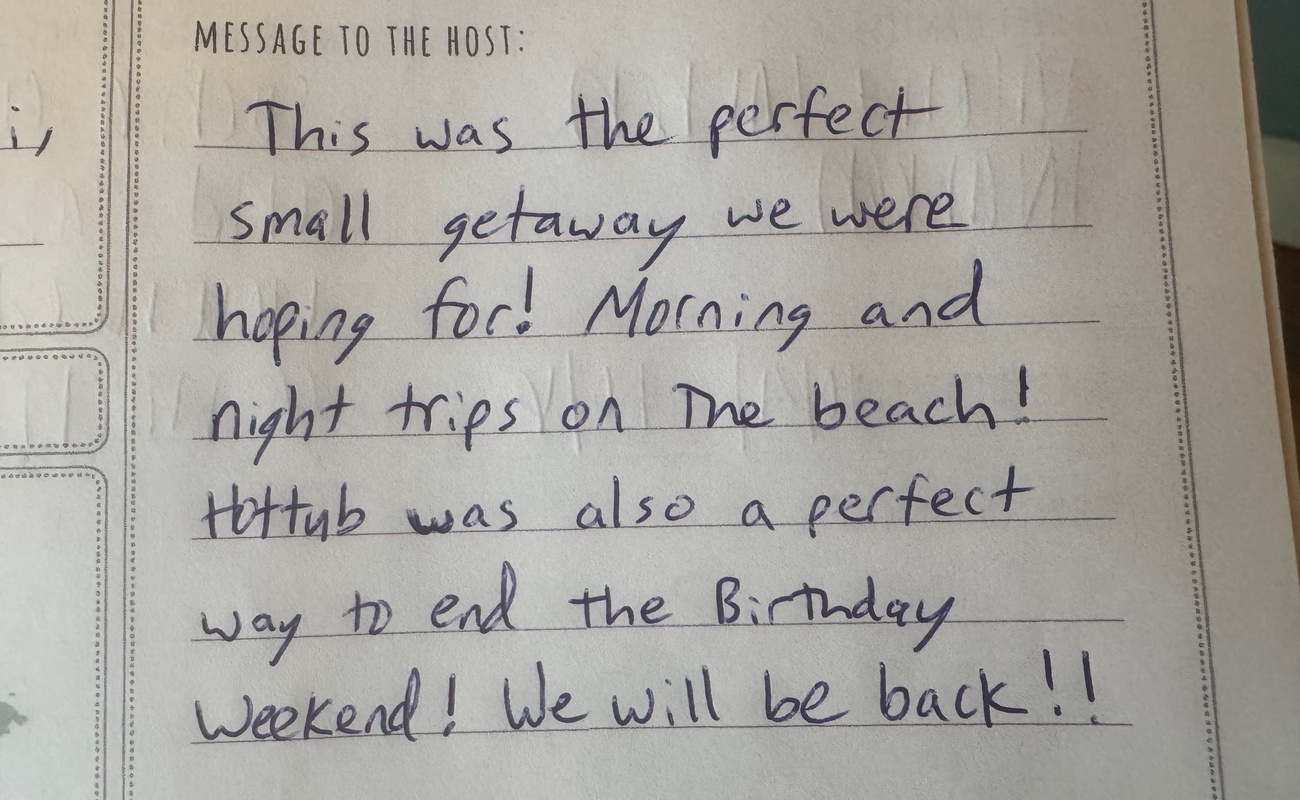 MESSAGE TO THE HOST:
This was the perfect
small getaway we were
hoping for! Morning and
night trips on The beach!
Hottub was also a perfect
way to end the Birthday
Weekend! We will be back!!